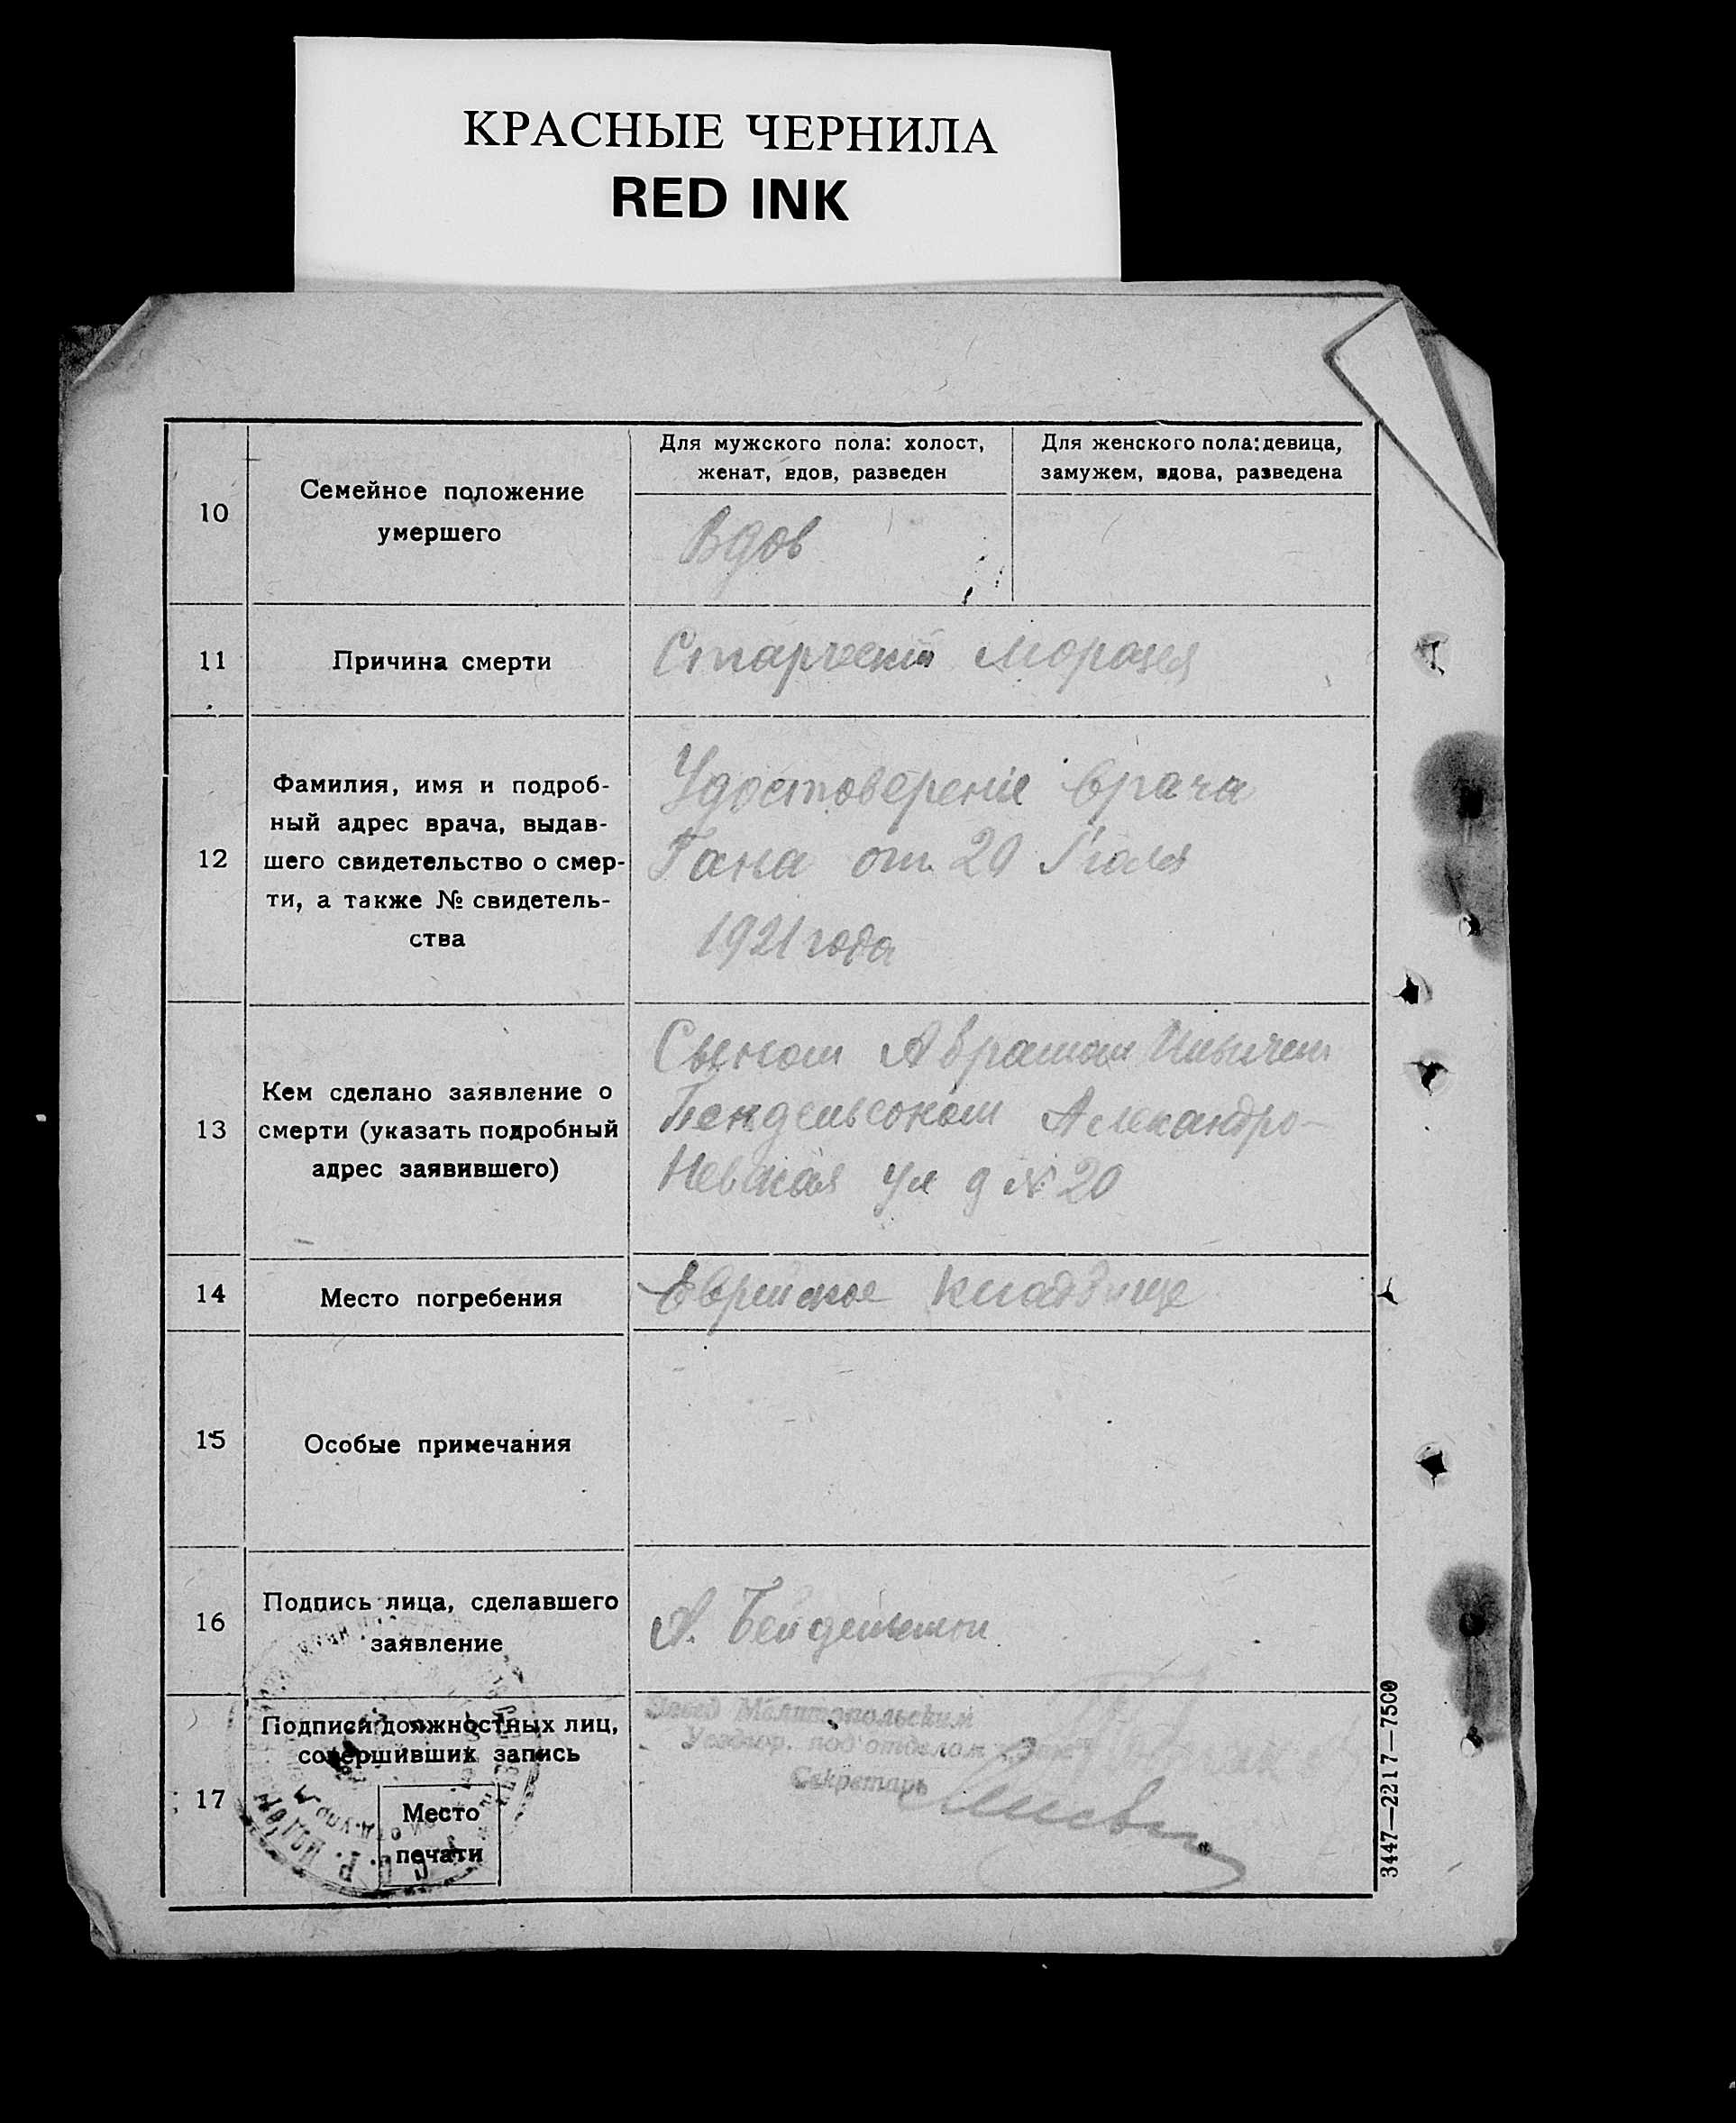 КРАСНЫЕ ЧЕРНИЛА
RED INK
10
Семейное положение
умершего
Для мужского пола: холост,
женат, вдов, разведен
Для женского пола: девица,
замужем, вдова, разведена
Вдов
11
Причина смерти
Старческий
12
Фамилия, имя и подроб-
ный адрес врача, выдав-
шего свидетельство о смер-
ти, а также № свидетель-
ства
Удостоверенiе врача
Гана от 20 Iюля
1921 года
13
Кем сделано заявление о
смерти (указать подробный
адрес заявившего)
Сыном Абрамом
Александро-
Невская ул д № 20
14
Место погребения
Еврейское кладбище
15
Особые примечания
16
Подпись лица, сделавшего
заявление
А.
17
Подписи должностных лиц,
совершивших запись
Место
печати
Завед Мелитопольским
Уездгор. под'отделом
Секретарь
3447—2217—7500